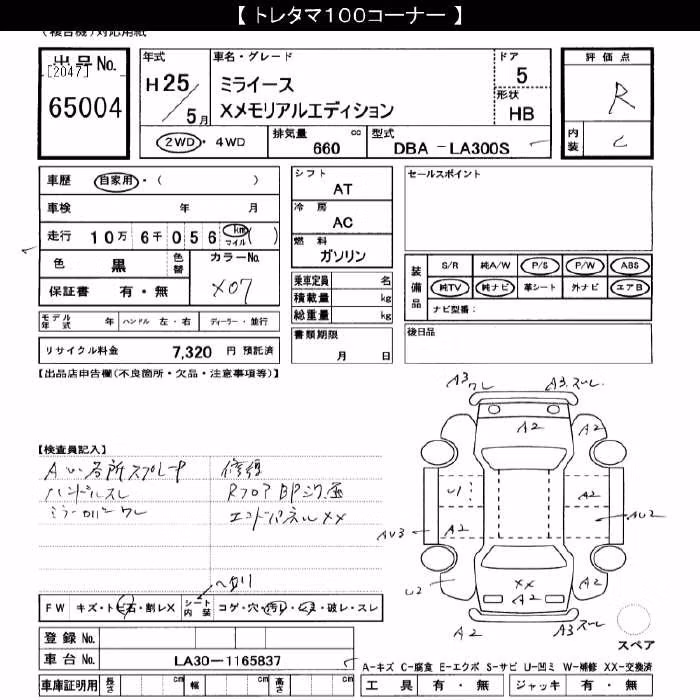 【 トレタマ100コーナー 】
(複合機)対応用紙
出品No.
[2047]
65004
年式
H25/5月
車名・グレード
ミライース
Xメモリアルエディション
ドア
5
形状
HB
評価点
R
内装
C
2WD・4WD
排気量
660
cc
型式
DBA -LA300S
車歴 自家用・( )
車検 年 月
走行 10万 6千 056 km マイル ( )
色 黒 色替 カラーNo.
X07
保証書 有・無
モデル年式 年 ハンドル 左・右 ディーラー・並行
リサイクル料金 7,320 円 預託済
シフト
AT
冷房
AC
燃料
ガソリン
乗車定員 名
積載量 kg
総重量 kg
書類期限
月 日
セールスポイント
装備品
S/R 純A/W P/S P/W ABS
純TV 純ナビ 革シート 外ナビ エアB
ナビ型番:
後日品
【出品店申告欄(不良箇所・欠品・注意事項等)】
【検査員記入】
ハンドルスレ
修復
エンドパネルXX
FW キズ・トビ石・割レX シート内装 コゲ・穴・汚レ・破レ・スレ
A3
A3.スレ
A2
A2
U1
A2
A2
AU3
AU2
U2
XX
A2
A2
A2
A3スレ
スペア
登録No.
車台No. LA30-1165837
A-キズ C-腐食 E-エクボ S-サビ U-凹ミ W-補修 XX-交換済
車庫証明用 長さ cm 幅 cm 高さ cm
工具 有・無 ジャッキ 有・無